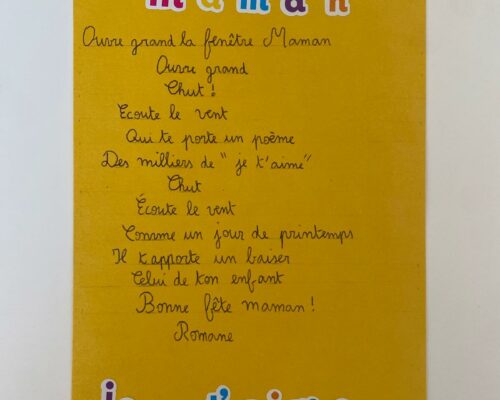 maman
Ouvre grand la fenêtre Maman
Ouvre grand
Chut !
Ecoute le vent
Qui te porte un poème
Des milliers de " je t'aime"
Chut
Écoute le vent
Comme un jour de printemps
Il t'apporte un baiser
Celui de ton enfant
Bonne fête maman !
Romane
je t'aime